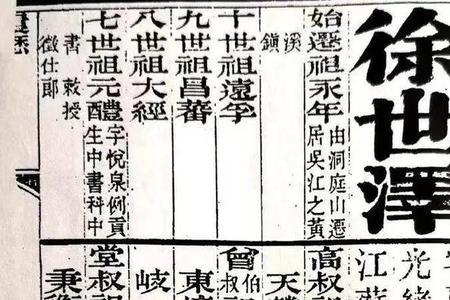 徐世澤
始遷祖永年
由洞庭山遷
居吳江之黃
溪
鎮
十世祖遠孚
九世祖昌蕃
八世祖大經
七世祖元醴
字悅泉例貢
生中書科中
書敕授
徵仕郎
光緒
江蘇
高叔
天
曾
伯
叔
東
岐
堂叔祖
秉衡